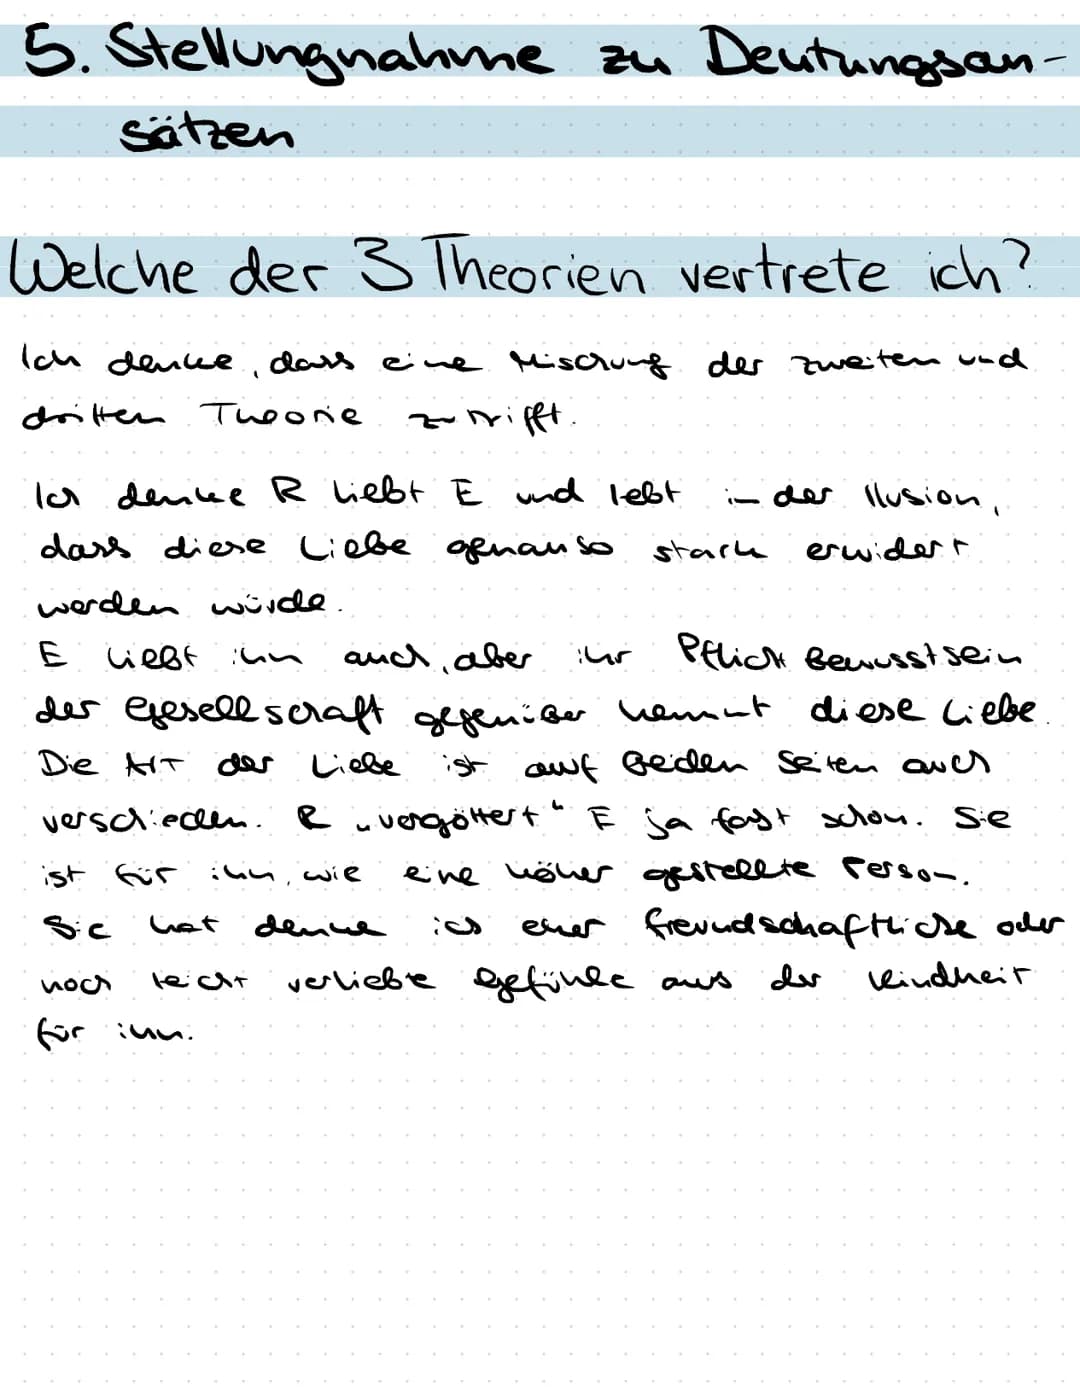 5. Stellungnahme zu Deutungsan-
sätzen
Welche der 3 Theorien vertrete ich?
Ich denke, dass eine Mischung der zweiten und
dritten Theorie zutrifft.
Ich denke R liebt E und lebt in der Ilusion,
dass diese Liebe genauso stark erwidert
werden würde.
E liebt ihn auch, aber ihr Pflicht Bewusstsein
der Gesellschaft gegenüber hemmt diese Liebe.
Die Art der Liebe ist auf beiden Seiten auch
verschieden. R „vergöttert“ E ja fast schon. Sie
ist für ihn, wie eine höher gestellte Person.
Sie hat denke ich eher freundschaftliche oder
noch leicht verliebte Gefühle aus der Kindheit
für ihn.